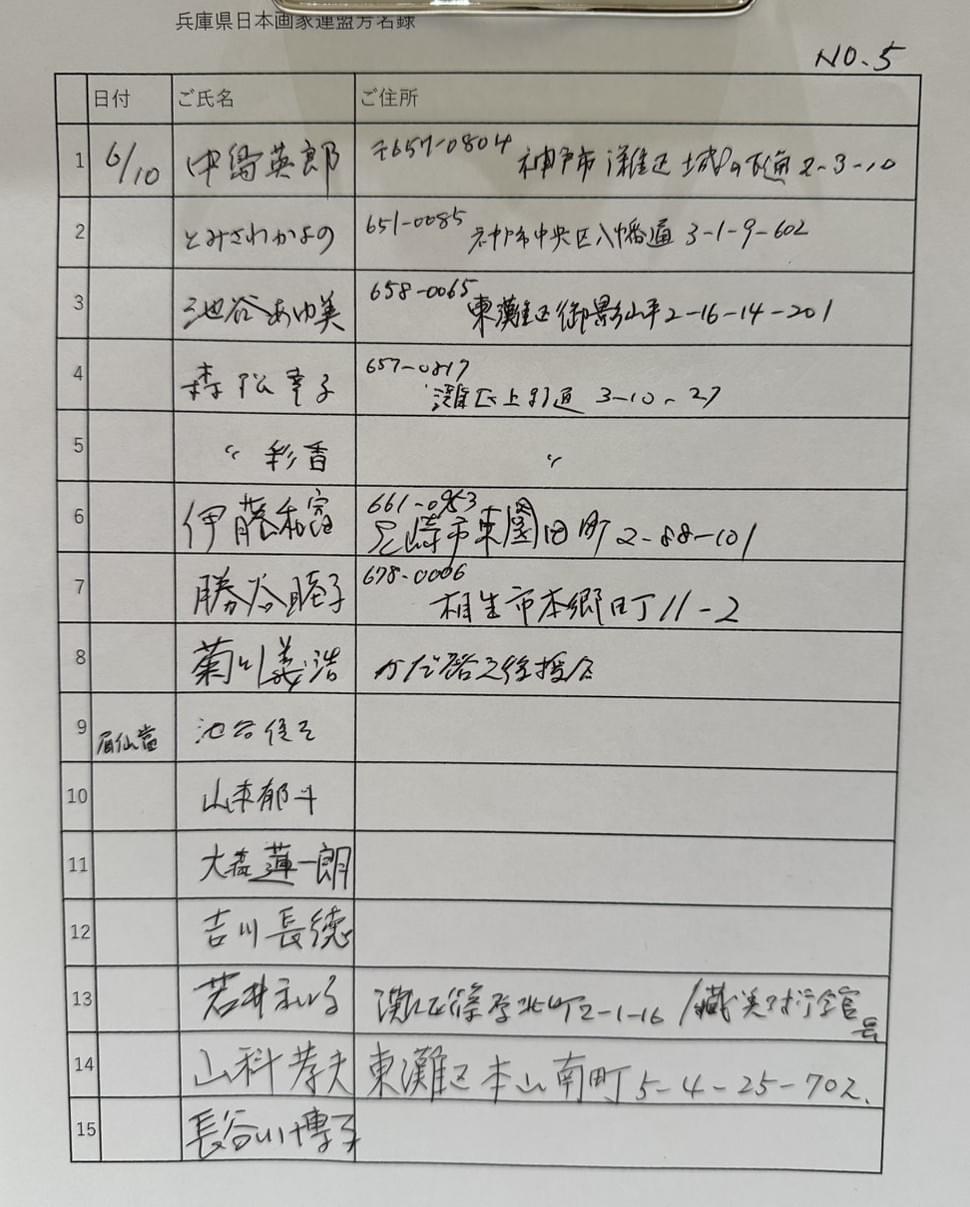 兵庫県日本画家連盟芳名録
NO.5
日付 ご氏名 ご住所
1 6/10 中島英郎 〒657-0804 神戸市灘区城の下通2-3-10
2 とみさわかよの 651-0085 神戸市中央区八幡通 3-1-9-602
3 池谷あゆ美 658-0065 東灘区御影山手2-16-14-201
4 森松幸子 657-0817 灘区上野通 3-10-27
5 〃 彩香 〃
6 伊藤和富 661-0953 尼崎市東園田町2-88-101
7 勝谷睦子 678-0006 相生市本郷町11-2
8 菊川義浩
9 池谷
10 山本郁斗
11 大森蓮一朗
12 吉川長徳
13 若井 灘区篠原北町2-1-16
14 山科孝夫 東灘区本山南町5-4-25-702.
15 長谷川博子